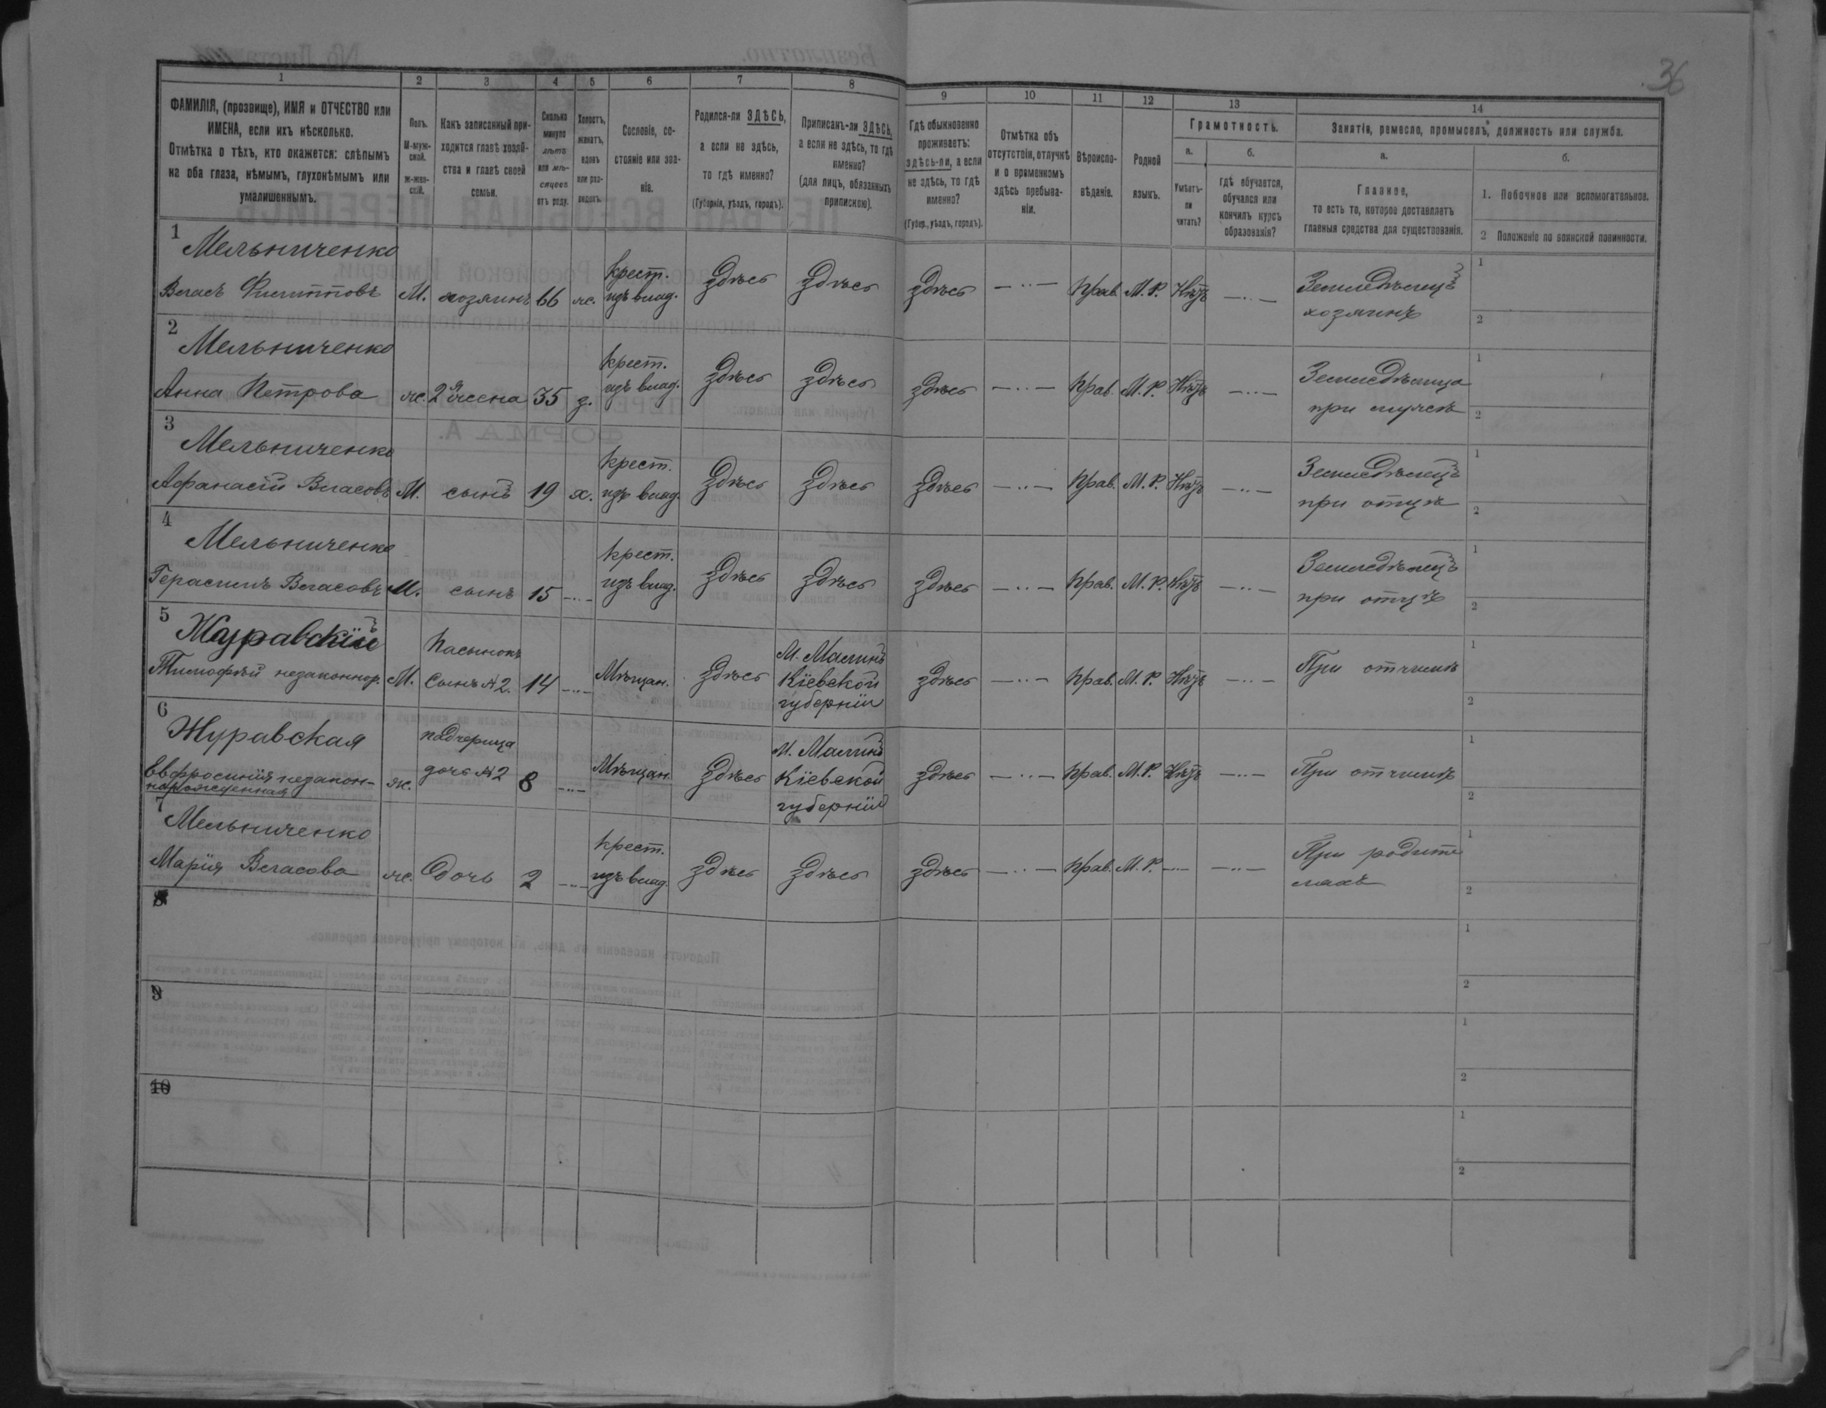 36
1 2 3 4 5 6 7 8 9 10 11 12 13 14
ФАМИЛІЯ, (прозвище), ИМЯ и ОТЧЕСТВО или
ИМЕНА, если ихъ нѣсколько.
Отмѣтка о тѣхъ, кто окажется: слѣпымъ
на оба глаза, нѣмымъ, глухонѣмымъ или
умалишеннымъ.
Полъ.
М-муж-
ской.
ж-жен-
скій.
Какъ записанный при-
ходится главѣ хозяй-
ства и главѣ своей
семьи.
Сколько
минуло
лѣтъ
или мѣ-
сяцевъ
отъ роду.
Холостъ,
женатъ,
вдовъ
или раз-
веденъ.
Сословіе, со-
стояніе или зва-
ніе.
Родился-ли ЗДѢСЬ,
а если не здѣсь,
то гдѣ именно?
(Губернія, уѣздъ, городъ).
Приписанъ-ли ЗДѢСЬ,
а если не здѣсь, то гдѣ
именно?
(для лицъ, обязанныхъ
припискою).
Гдѣ обыкновенно
проживаетъ:
здѣсь-ли, а если
не здѣсь, то гдѣ
именно?
(Губер., уѣздъ, городъ).
Отмѣтка объ
отсутствіи, отлучкѣ
и о временномъ
здѣсь пребыва-
ніи.
Вѣроиспо-
вѣданіе.
Родной
языкъ.
Грамотность.
а.
Умѣетъ-
ли
читать?
б.
гдѣ обучается,
обучался или
кончилъ курсъ
образованія?
Занятія, ремесло, промыселъ, должность или служба.
а.
Главное,
то есть то, которое доставляетъ
главныя средства для существованія.
б.
1. Побочное или вспомогательное.
2 Положеніе по воинской повинности.
1 Мельниченко
Власъ Филипповъ М. хозяинъ 66 ж. крест. изъ влад. Здѣсь Здѣсь здѣсь — Прав. М.Р. Нѣтъ — Земледѣлецъ хозяинъ 1 2
2 Мельниченко
Анна Петрова ж. 2я жена 35 з. крест. изъ влад. Здѣсь здѣсь здѣсь — Прав. М.Р. Нѣтъ — Земледѣлица при мужѣ 1 2
3 Мельниченко
Афанасій Власовъ М. сынъ 19 х. крест. изъ влад. Здѣсь Здѣсь здѣсь — Прав. М.Р. Нѣтъ — Земледѣлецъ при отцѣ 1 2
4 Мельниченко
Герасимъ Власовъ М. сынъ 15 — крест. изъ влад. Здѣсь Здѣсь здѣсь — Прав. М.Р. Нѣтъ — Земледѣлецъ при отцѣ 1 2
5 Журавскій
Тимофѣй незаконнор. М. Пасынокъ Сынъ №2. 14 — Мѣщан. здѣсь М. Малинъ Кіевской губерніи здѣсь — Прав. М.Р. Нѣтъ — При отчимѣ 1 2
6 Журавская
Евфросинія незакон-
норожденная ж. падчерица дочь №2 8 — Мѣщан. Здѣсь М. Малинъ Кіевской губерніи здѣсь — Прав. М.Р. Нѣтъ — При отчимѣ 1 2
7 Мельниченко
Марія Власова ж. дочь 2 — крест. изъ влад. здѣсь здѣсь здѣсь — Прав. М.Р. — — При родите
ляхъ 1 2
8 1 2
9 1 2
10 1 2